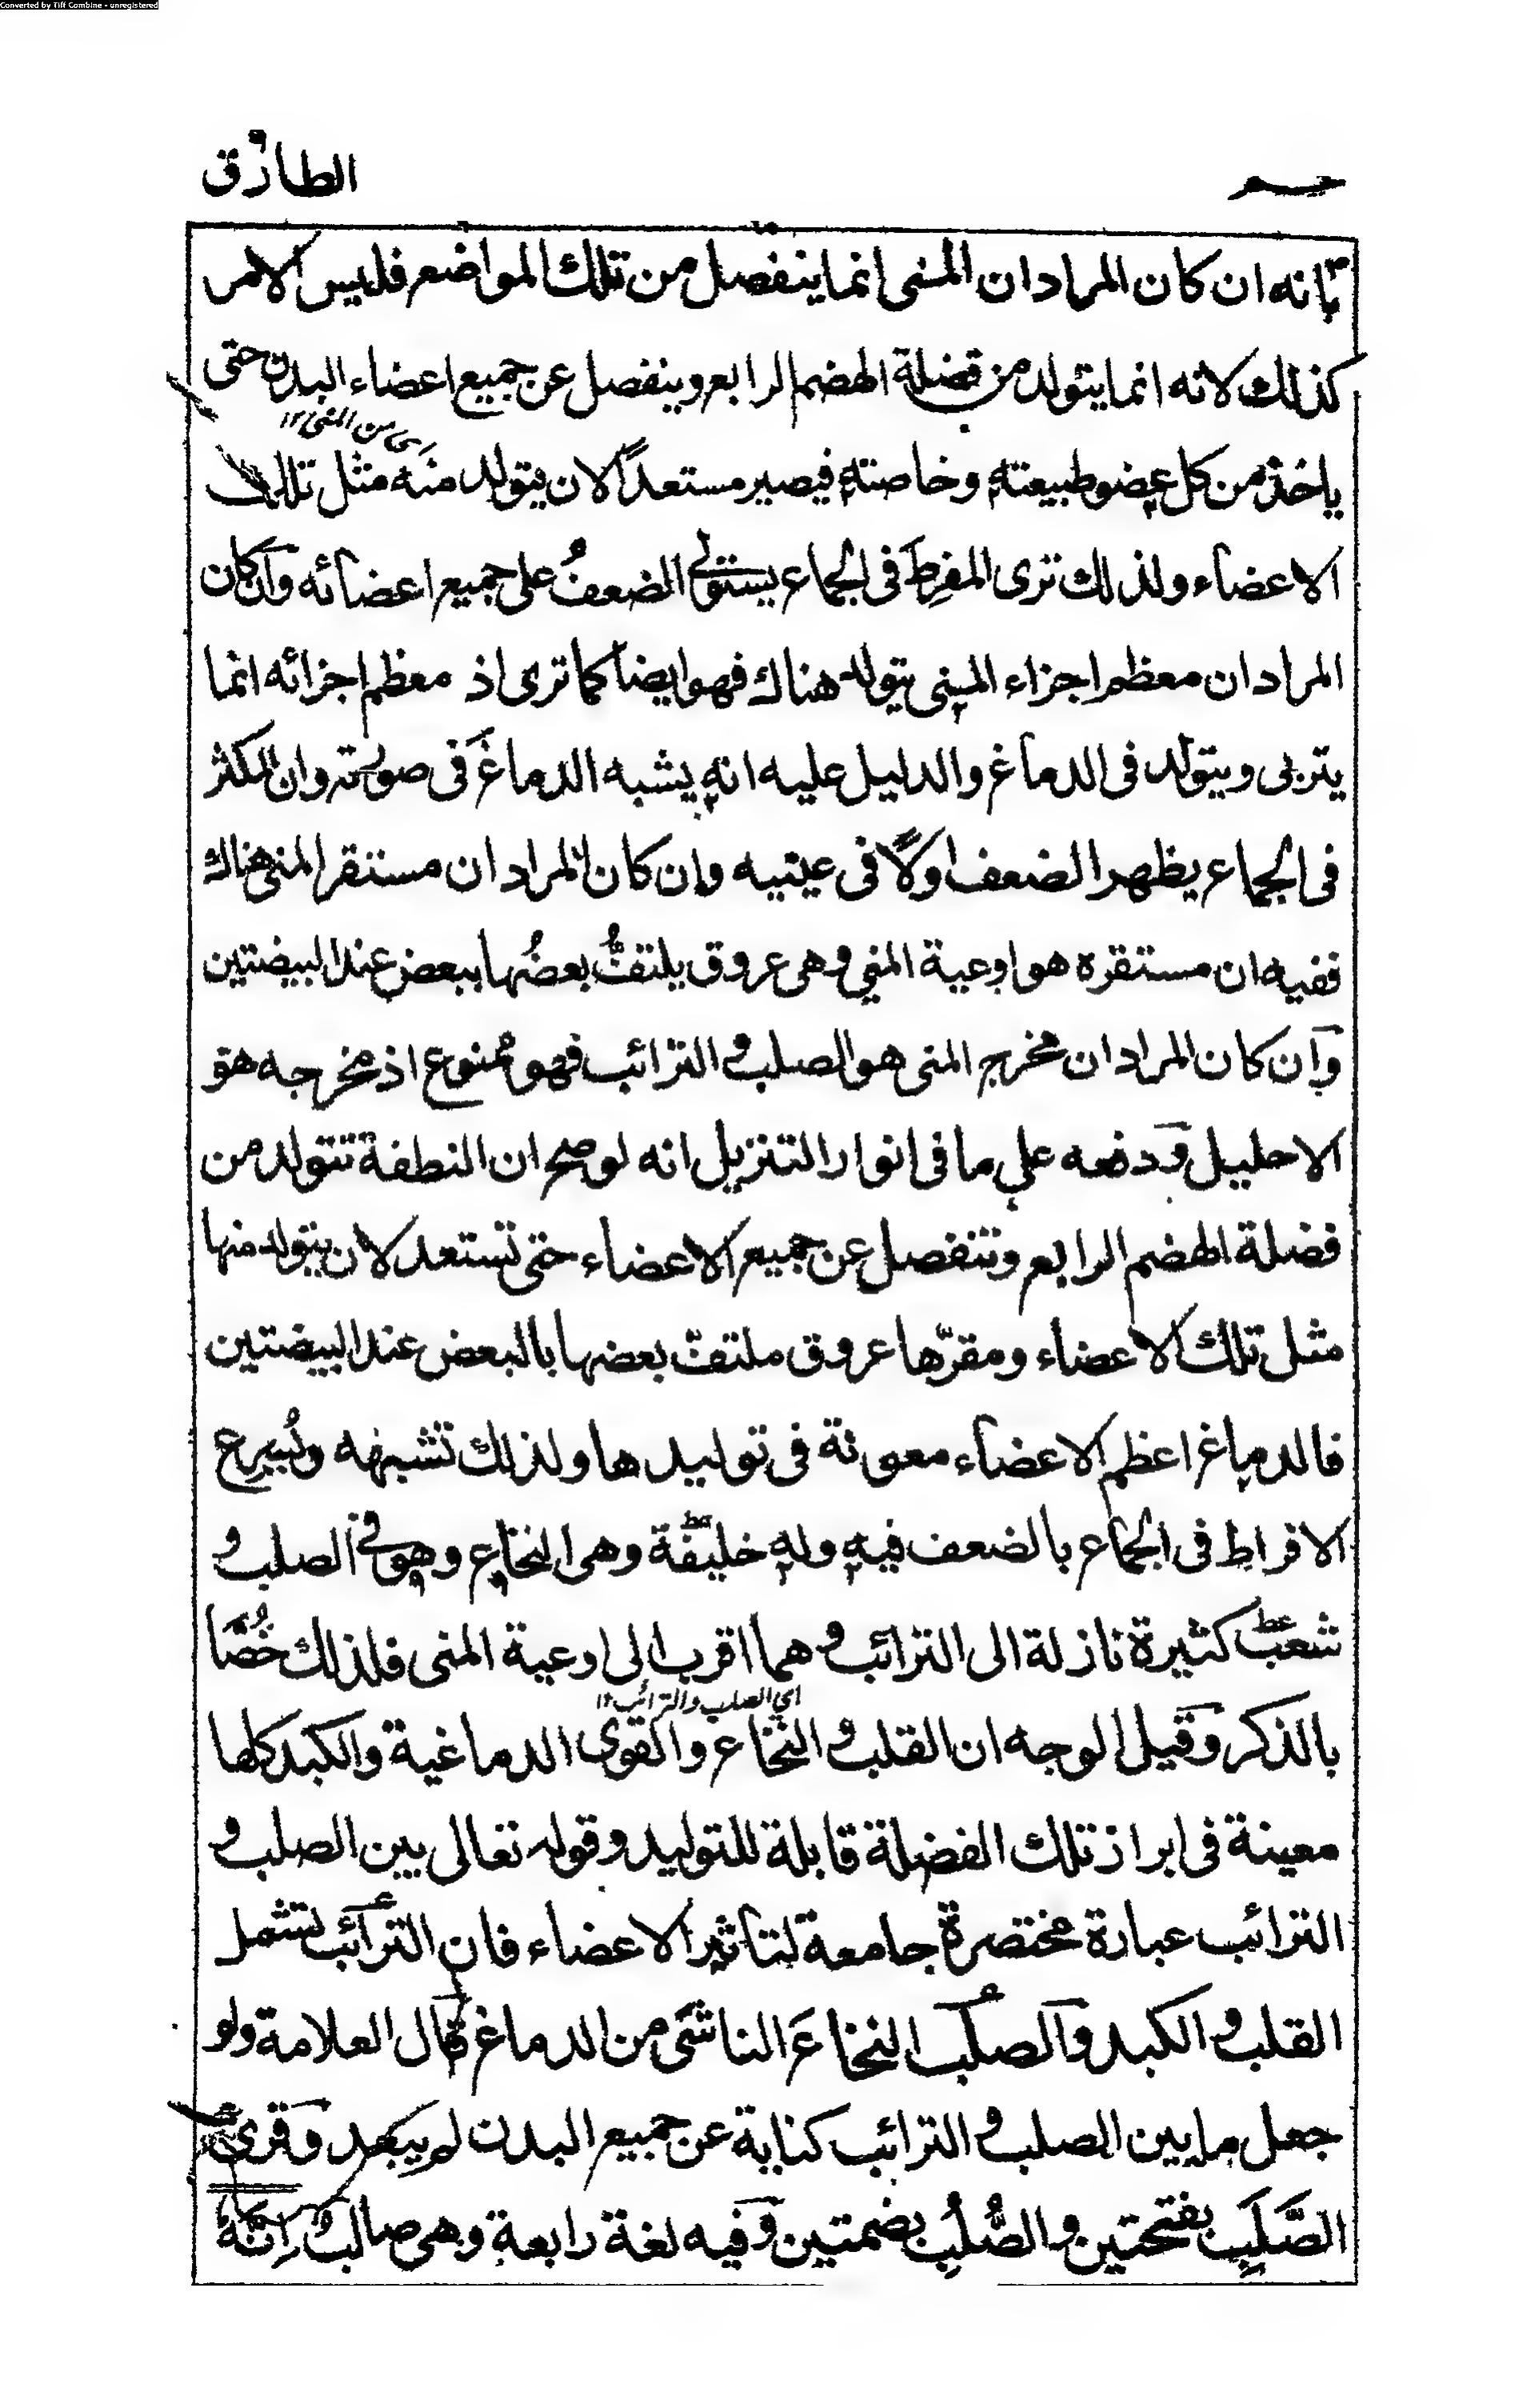 Converted by Tiff Combine - unregistered
عم
الطارق
بانه ان كان المراد ان المنى انما ينفصل من تلك المواضع فليس الامر
كذلك لانه انما يتولد من فضلة الهضم الرابع وينفصل عن جميع اعضاء البدن حتى
اى من المنى ١٢
ياخذ من كل عضو طبيعته وخاصته فيصير مستعدًا لان يتولد منه مثل تلك
الاعضاء ولذلك ترى المفرِطَ فى الجماع يستولى الضعفُ على جميع اعضائه وان كان
المراد ان معظم اجزاء المنى يتولد هناك فهو ايضا كما ترى اذ معظم اجزائه انما
يتربى ويتولد فى الدماغ والدليل عليه انه يشبه الدماغَ فى صورته وان المكثر
فى الجماع يظهر الضعف اولًا فى عينيه وان كان المراد ان مستقر المنى هناك
ففيه ان مستقره هو اوعية المنى وهى عروق يلتفُّ بعضُها ببعض عند البيضتين
وان كان المراد ان مخرج المنى هو الصلب والترائب فهو ممنوع اذ مخرجه هو
الاحليل ودفعه على ما فى انوار التنزيل انه لو صح ان النطفة تتولد من
فضلة الهضم الرابع وتنفصل عن جميع الاعضاء حتى تستعد لان يتولد منها
مثل تلك الاعضاء ومقرّها عروق ملتفّ بعضها بالبعض عند البيضتين
فالدماغ اعظم الاعضاء معونة فى توليدها ولذلك تشبهه ويُسرِع
الافراط فى الجماع بالضعف فيه وله خليفة وهى النخاع وهو فى الصلب و
شعب كثيرة نازلة الى الترائب وهما اقرب الى اوعية المنى فلذلك خُصَّا
اى الصلب والترائب ١٢
بالذكر وقيل الوجه ان القلب والنخاع والقوى الدماغية والكبد كلها
معينة فى ابراز تلك الفضلة قابلة للتوليد وقوله تعالى بين الصلب و
الترائب عبارة مختصرة جامعة لتاثير الاعضاء فان الترائبَ تشمل
القلب والكبد والصلبُ النخاعَ الناشى من الدماغ قال العلامة ولو
جعل ما بين الصلب والترائب كناية عن جميع البدن لم يبعد وقرئ
الصَّلَبِ بفتحتين والصُّلُبِ بضمتين وفيه لغة رابعة وهى صالب اِنَّهٗ